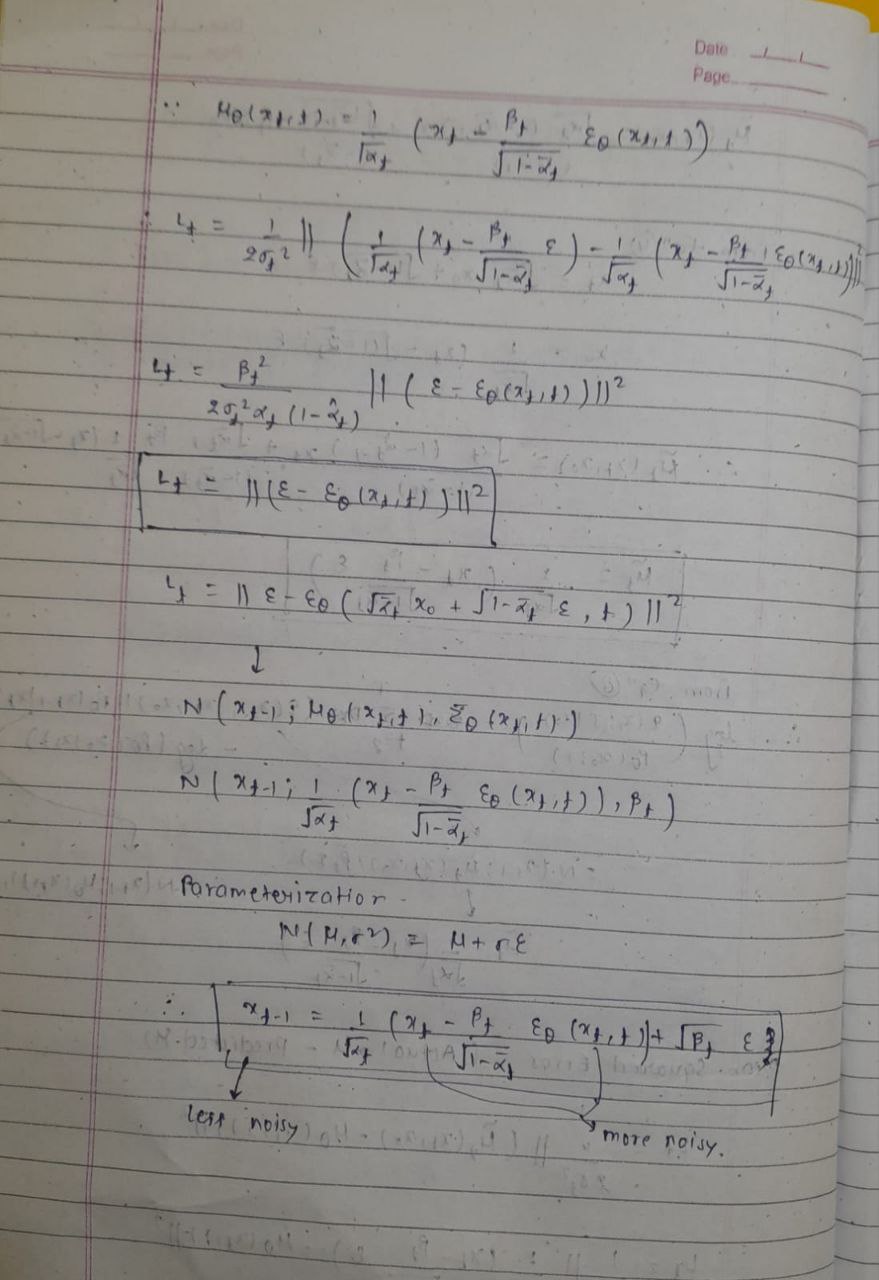 Date / /
Page
∵ μ_θ(x_t, t) = 1/√α_t (x_t - β_t/√(1-ᾱ_t) ε_θ(x_t, t))
∴ L_t = 1/2σ_t² || (1/√α_t (x_t - β_t/√(1-ᾱ_t) ε) - 1/√α_t (x_t - β_t/√(1-ᾱ_t) ε_θ(x_t, t)) ||²
L_t = β_t²/2σ_t² α_t (1-α̂_t) || (ε - ε_θ(x_t, t)) ||²
L_t = || (ε - ε_θ(x_t, t)) ||²
L_t = || ε - ε_θ(√ᾱ_t x_0 + √(1-ᾱ_t) ε, t) ||²
↓
N(x_t-1; μ_θ(x_t, t), Σ_θ(x_t, t))
N(x_t-1; 1/√α_t (x_t - β_t/√(1-ᾱ_t) ε_θ(x_t, t)), β_t)
Parameterization
N(μ, σ²) = μ + σε
∴ x_t-1 = 1/√α_t (x_t - β_t/√(1-ᾱ_t) ε_θ(x_t, t)) + √β_t ε
less noisy
more noisy.